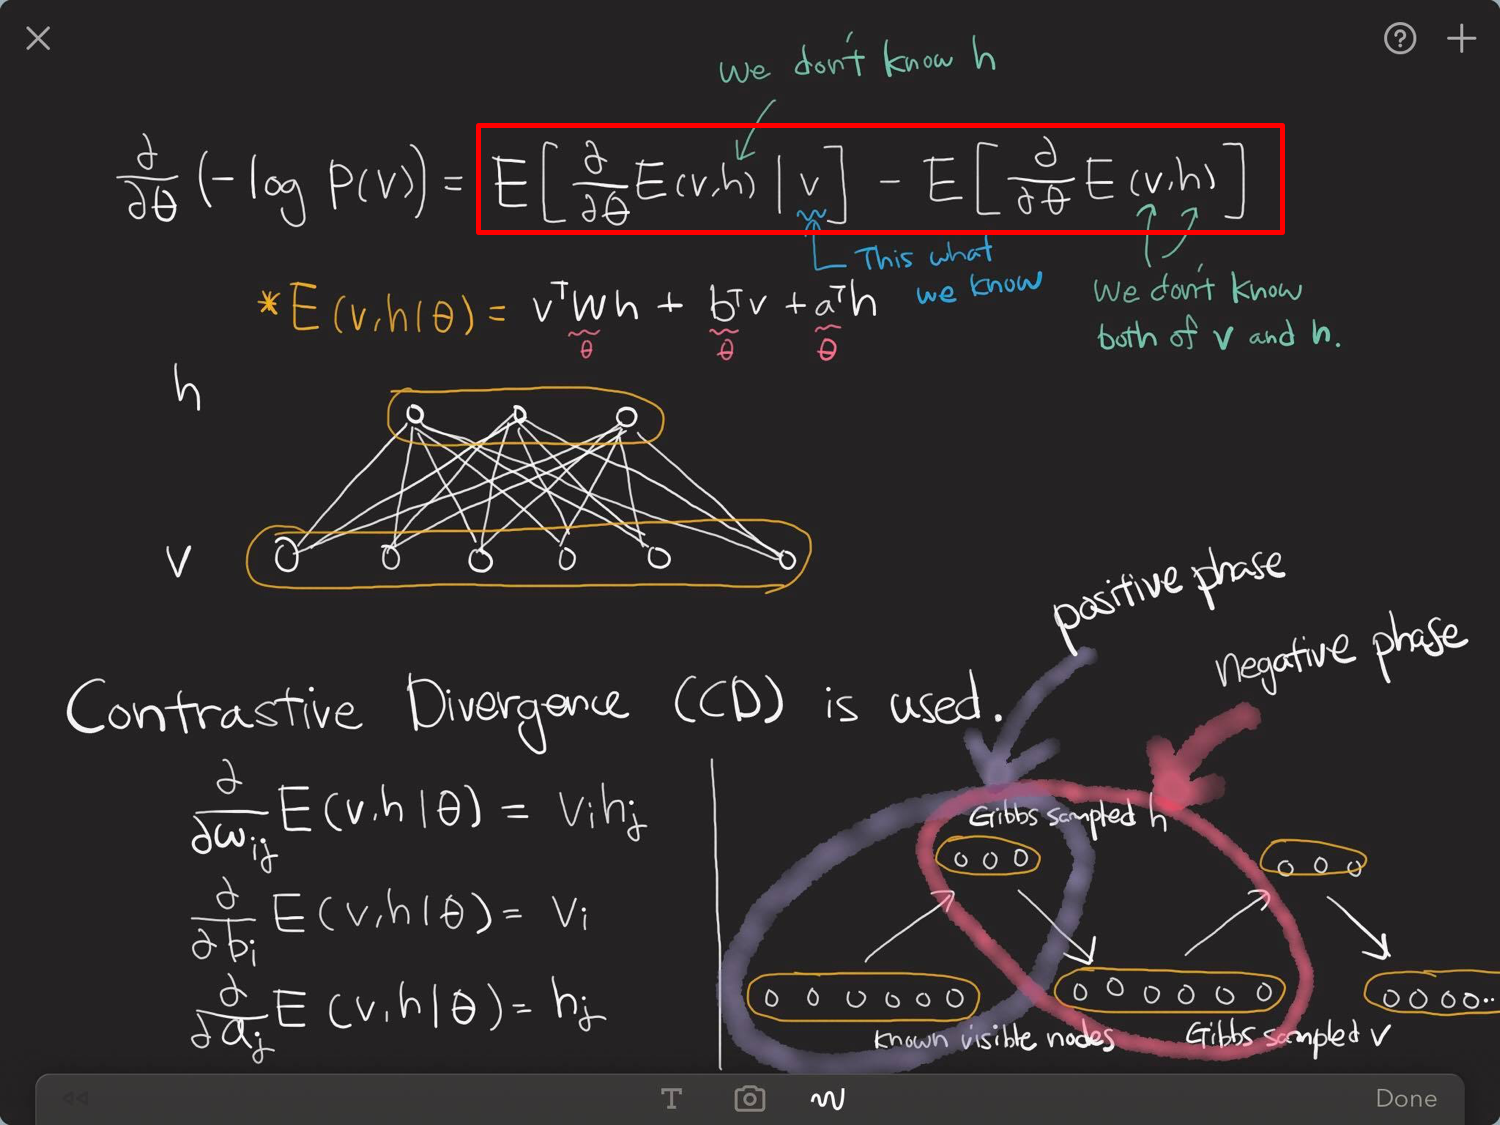 We don't know h
∂/∂θ (-log P(v)) = E[∂/∂θ E(v,h) | v] - E[∂/∂θ E(v,h)]
This what
we know
We don't know
both of v and h.
*E(v,h|θ) = vᵀWh + bᵀv + aᵀh
θ θ θ
h
v
positive phase
negative phase
Contrastive Divergence (CD) is used.
∂/∂wij E(v,h|θ) = vihj
∂/∂bi E(v,h|θ) = vi
∂/∂aj E(v,h|θ) = hj
Gibbs sampled h
known visible nodes
Gibbs sampled v
T
Done